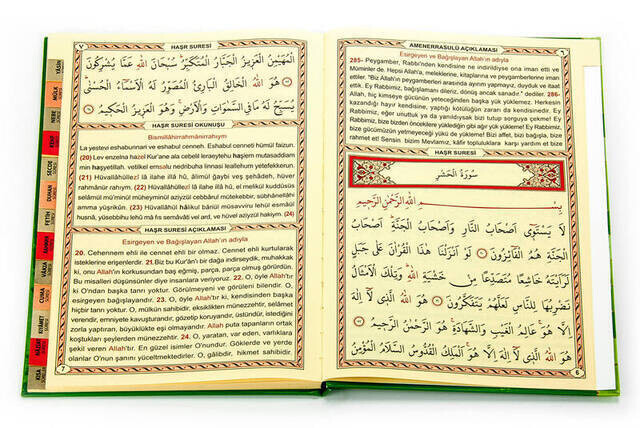 AMENERRASULÜ AÇIKLAMASI
Esirgeyen ve Bağışlayan Allah'ın adıyla
285- Peygamber, Rabbi'nden kendisine ne indirildiyse ona iman etti ve
Müminler de. Hepsi Allah'a, meleklerine, kitaplarına ve peygamberlerine iman
ettiler. "Biz Allah'ın peygamberleri arasında ayırım yapmayız, duyduk ve itaat
ettik. Ey Rabbimiz, bağışlaman dileriz, dönüş ancak sanadır." dediler. 286-
Allah, hiç kimseye gücünün yeteceğinden başka yük yüklemez. Herkesin
kazandığı hayır kendisine, yaptığı kötülüğün zararı da kendisinedir. Ey
Rabbimiz, eğer unuttuk ya da yanıldıysak bizi tutup sorguya çekme! Ey
Rabbimiz, bize bizden öncekilere yüklediğin gibi ağır yük yükleme! Ey Rabbimiz,
bize gücümüzün yetmeyeceği yükü da yükleme! Bizi affet, bizi bağışla, bize
rahmet et! Sensin bizim Mevlamız, kâfir topluluklara karşı yardım et bize
HAŞR SURESİ
سُورَةُ الْحَشْرِ
بِسْمِ اللهِ الرَّحْمٰنِ الرَّحِيمِ
لَا يَسْتَوِي أَصْحَابُ النَّارِ وَأَصْحَابُ الْجَنَّةِ أَصْحَابُ
الْجَنَّةِ هُمُ الْفَائِزُونَ لَوْ أَنْزَلْنَا هٰذَا الْقُرْاٰنَ عَلٰى جَبَلٍ
لَرَاَيْتَهُ خَاشِعًا مُتَصَدِّعًا مِنْ خَشْيَةِ اللهِ وَتِلْكَ الْاَمْثَالُ
نَضْرِبُهَا لِلنَّاسِ لَعَلَّهُمْ يَتَفَكَّرُونَ هُوَ اللهُ الَّذِي لَا اِلٰهَ
اِلَّا هُوَ عَالِمُ الْغَيْبِ وَالشَّهَادَةِ هُوَ الرَّحْمٰنُ الرَّحِيمُ
هُوَ اللهُ الَّذِي لَا اِلٰهَ اِلَّا هُوَ اَلْمَلِكُ الْقُدُّوسُ السَّلَامُ الْمُؤْمِنُ
6
HAŞR SURESİ
الْمُهَيْمِنُ الْعَزِيزُ الْجَبَّارُ الْمُتَكَبِّرُ سُبْحَانَ اللهِ عَمَّا يُشْرِكُونَ
هُوَ اللهُ الْخَالِقُ الْبَارِئُ الْمُصَوِّرُ لَهُ الْاَسْمَاءُ الْحُسْنٰى
يُسَبِّحُ لَهُ مَا فِي السَّمٰوَاتِ وَالْاَرْضِ وَهُوَ الْعَزِيزُ الْحَكِيمُ
HAŞR SURESİ OKUNUŞU
Bismillâhirrahmânirrahıym
La yestevi eshabunnari ve eshabul cenneh. Eshabul cenneti hümül faizun.
(20) Lev enzelna hazel Kur'ane ala cebelil leraeytehu haşiem mutasaddiam
min haşyetillah. vetilkel emsalu nedribuha linnasi leallehum yetefekkerun.
(21) Hüvallâhüllezî lâ ilahe illâ hû, âlimül ğaybi veş şehâdeh, hüver
rahmânür rahıym. (22) Hüvallâhüllezî lâ ilahe illâ hû, el melikül kuddûsüs
selâmül mü'minül müheyminül aziyzül cebbârul mütekebbir, sübhânellahi
amma yüşrikûn. (23) Hüvallâhül hâlikul bâriül müsavviru lehül esmâül
husnâ, yüsebbihu lehû mâ fis semâvâti vel ard, ve hüvel aziyzül hakiym. (24)
HAŞR SURESİ AÇIKLAMASI
Esirgeyen ve Bağışlayan Allah'ın adıyla
20. Cehennem ehli ile cennet ehli bir olmaz. Cennet ehli kurtularak
isteklerine erişenlerdir. 21.Biz bu Kur'ân'ı bir dağa indirseydik, muhakkak
ki, onu Allah'ın korkusundan baş eğmiş, parça, parça olmuş görürdün.
Bu misalleri düşünsünler diye insanlara veriyoruz. 22. O, öyle Allah'tır
ki O'ndan başka tanrı yoktur. Görülmeyeni ve görüleni bilendir. O,
esirgeyen bağışlayandır. 23. O, öyle Allah'tır ki, kendisinden başka
hiçbir tanrı yoktur. O, mülkün sahibidir, eksiklikten münezzehtir, selâmet
verendir, emniyete kavuşturandır, gözetip koruyandır, üstündür, istediğini
zorla yaptıran, büyüklükte eşi olmayandır. Allah puta tapanların ortak
koştukları şeylerden münezzehtir. 24. O, yaratan, var eden, varlıklara
şekil veren Allah'tır. En güzel isimler O'nundur. Göklerde ve yerde
olanlar O'nun şanını yüceltmektedirler. O, gâlibdir, hikmet sahibidir.
7
YÂSİN
MÜLK
NEBE
SECDE
DUHAN
FETİH
RAHMAN
VAKIA
CUMA
KIYAMET
KISA